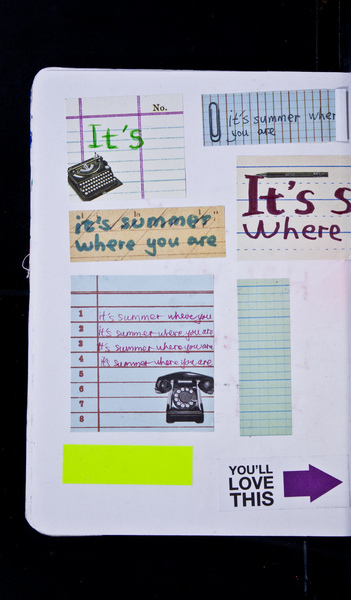 No.
It's
it's summer wher
you are
It's s
Where
it's summer
where you are
1 it's summer where you
2 it's summer where you are
3 it's summer where you are
4 it's summer where you are
5
6
7
8
YOU'LL
LOVE
THIS